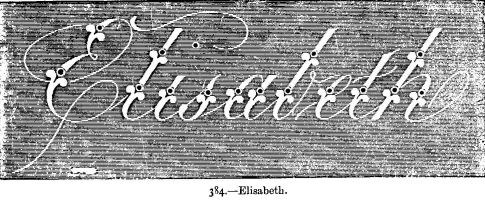 Elisabeth
384.—Elisabeth.